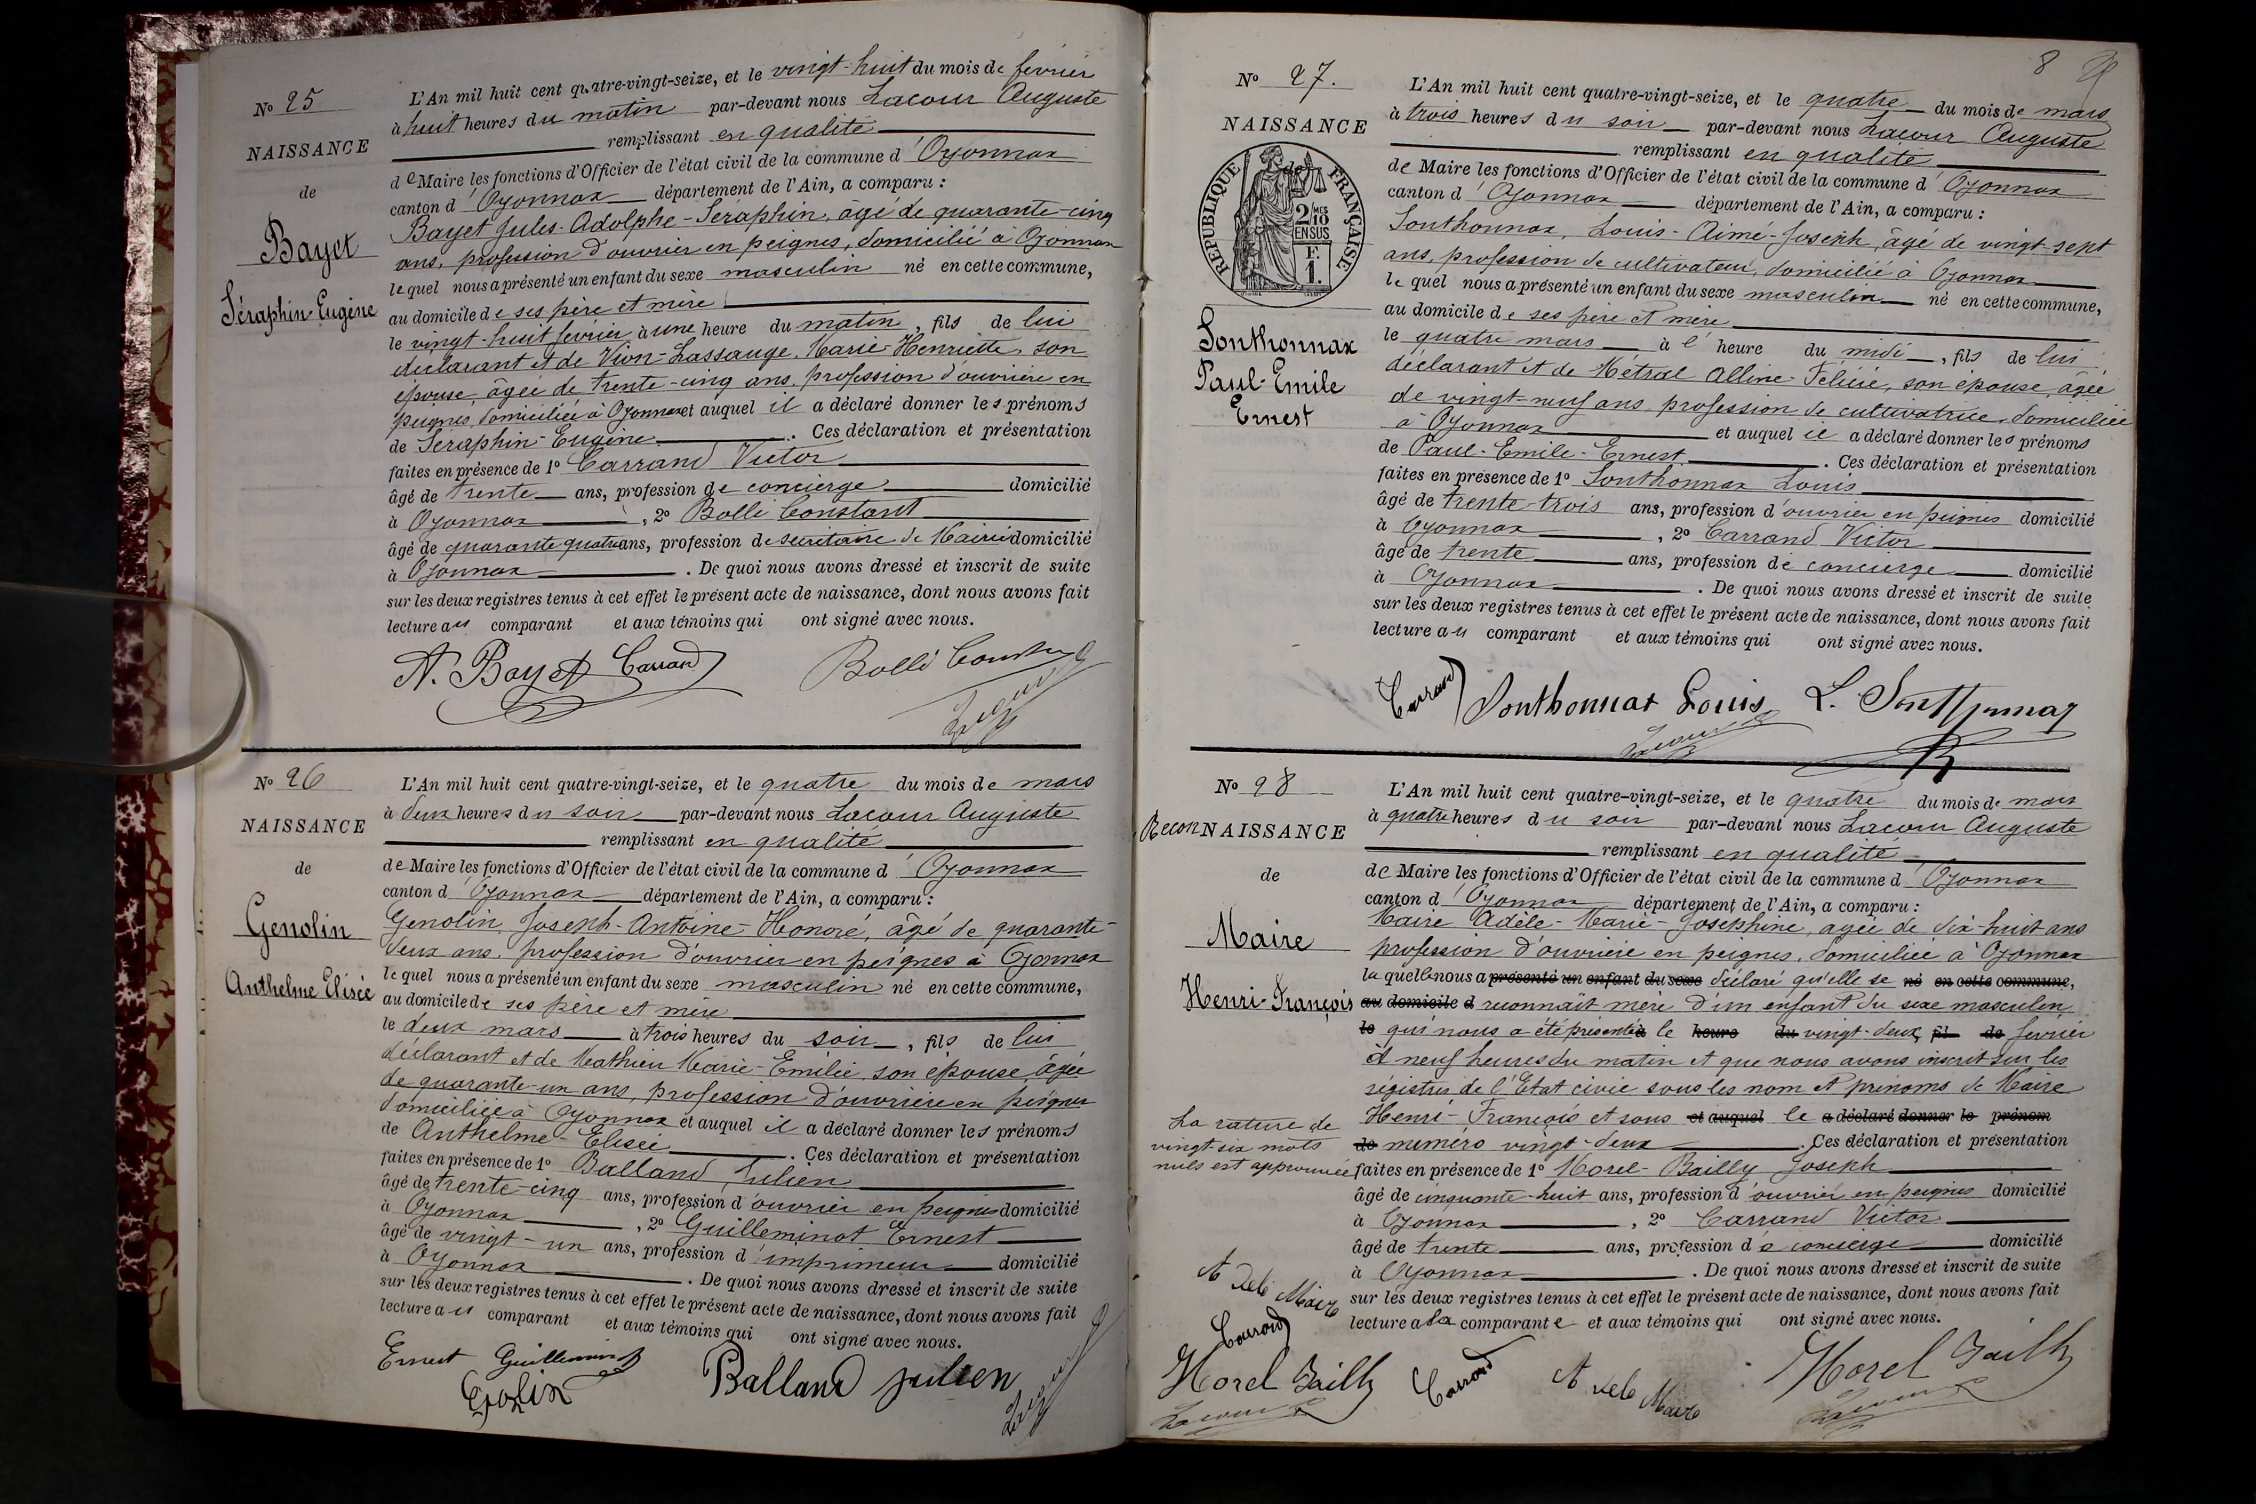 No 25
NAISSANCE
de
Bayet
Séraphin Eugène
L'An mil huit cent quatre-vingt-seize, et le vingt-huit du mois de février
à huit heures du matin par-devant nous Lacour Auguste
remplissant en qualité
de Maire les fonctions d'Officier de l'état civil de la commune d'Oyonnax
canton d'Oyonnax département de l'Ain, a comparu :
Bayet Jules-Adolphe-Séraphin, âgé de quarante-cinq
ans, profession d'ouvrier en peignes, domicilié à Oyonnax
lequel nous a présenté un enfant du sexe masculin né en cette commune,
au domicile de ses père et mère
le vingt-huit février à une heure du matin, fils de lui
déclarant et de Vion-Lassauge, Marie-Henriette, son
épouse, âgée de trente-cinq ans, profession d'ouvrière en
peignes, domiciliée à Oyonnax et auquel il a déclaré donner les prénoms
de Seraphin-Eugène. Ces déclaration et présentation
faites en présence de 1o Carrand Victor
âgé de trente ans, profession de concierge domicilié
à Oyonnax, 2o Bolli Constant
âgé de quarante quatre ans, profession de secrétaire de Mairie domicilié
à Oyonnax. De quoi nous avons dressé et inscrit de suite
sur les deux registres tenus à cet effet le présent acte de naissance, dont nous avons fait
lecture au comparant et aux témoins qui ont signé avec nous.
A. Bayet Carrand Bolli Constant
Lacour
No 26
NAISSANCE
de
Genolin
Anthelme Elisée
L'An mil huit cent quatre-vingt-seize, et le quatre du mois de mars
à deux heures du soir par-devant nous Lacour Auguste
remplissant en qualité
de Maire les fonctions d'Officier de l'état civil de la commune d'Oyonnax
canton d'Oyonnax département de l'Ain, a comparu :
Genolin, Joseph-Antoine-Honoré, âgé de quarante-
deux ans, profession d'ouvrier en peignes à Oyonnax
lequel nous a présenté un enfant du sexe masculin né en cette commune,
au domicile de ses père et mère
le deux mars à trois heures du soir, fils de lui
déclarant et de Mathieu Marie-Emélie, son épouse, âgée
de quarante-un ans, profession d'ouvrière en peignes
domiciliée à Oyonnax et auquel il a déclaré donner les prénoms
de Anthelme-Elisée. Ces déclaration et présentation
faites en présence de 1o Balland, Julien
âgé de trente-cinq ans, profession d'ouvrier en peignes domicilié
à Oyonnax, 2o Guilleminot Ernest
âgé de vingt-un ans, profession d'imprimeur domicilié
à Oyonnax. De quoi nous avons dressé et inscrit de suite
sur les deux registres tenus à cet effet le présent acte de naissance, dont nous avons fait
lecture au comparant et aux témoins qui ont signé avec nous.
Ernest Guilleminot
Balland Julien
Lacour
8
No 27.
NAISSANCE
de
RÉPUBLIQUE FRANÇAISE
2 MES
10
EN SUS
F.
1.
Sonthonnax
Paul-Emile
Ernest
L'An mil huit cent quatre-vingt-seize, et le quatre du mois de mars
à trois heures du soir par-devant nous Lacour Auguste
remplissant en qualité
de Maire les fonctions d'Officier de l'état civil de la commune d'Oyonnax
canton d'Oyonnax département de l'Ain, a comparu :
Sonthonnax, Louis-Aimé-Joseph, âgé de vingt-sept
ans, profession de cultivateur, domicilié à Oyonnax
le quel nous a présenté un enfant du sexe masculin né en cette commune,
au domicile de ses père et mère
le quatre mars à l' heure du midi, fils de lui
déclarant et de Métral Alline-Félicie, son épouse, âgée
de vingt-neuf ans profession de cultivatrice, domiciliée
à Oyonnax et auquel il a déclaré donner les prénoms
de Paul-Emile-Ernest. Ces déclaration et présentation
faites en présence de 1o Sonthonnax Louis
âgé de trente-trois ans, profession d'ouvrier en peignes domicilié
à Oyonnax, 2o Carrand Victor
âgé de trente ans, profession de concierge domicilié
à Oyonnax. De quoi nous avons dressé et inscrit de suite
sur les deux registres tenus à cet effet le présent acte de naissance, dont nous avons fait
lecture au comparant et aux témoins qui ont signé avec nous.
Carrand Sonthonnax Louis L. Sonthonnax
Lacour
No 28
ReconNAISSANCE
de
Maire
Henri-François
La rature de
vingt six mots
nuls est approuvée
L'An mil huit cent quatre-vingt-seize, et le quatre du mois de mars
à quatre heures du soir par-devant nous Lacour Auguste
remplissant en qualité
de Maire les fonctions d'Officier de l'état civil de la commune d'Oyonnax
canton d'Oyonnax département de l'Ain, a comparu :
Maire Adèle-Marie-Joséphine, agée de dix-huit ans
profession d'ouvrière en peignes, domiciliée à Oyonnax
la quelle nous a présenté un enfant du sexe déclaré qu'elle se né en cette commune,
au domicile d reconnait mère d'un enfant du sexe masculin
le qui nous a été présenté à le heure du vingt-deux fil de fevrier
à neuf heures du matin et que nous avons inscrit sur les
régistres de l'Etat civil sous les nom et prénoms de Maire
Henri-François et sous et auquel le a déclaré donner le prénom
de numéro vingt-deux. Ces déclaration et présentation
faites en présence de 1o Morel-Bailly Joseph
âgé de cinquante-huit ans, profession d'ouvrier en peignes domicilié
à Oyonnax, 2o Carrand Victor
âgé de trente ans, profession de concierge domicilié
à Oyonnax. De quoi nous avons dressé et inscrit de suite
sur les deux registres tenus à cet effet le présent acte de naissance, dont nous avons fait
lecture à la comparante et aux témoins qui ont signé avec nous.
Adele Maire
Carrand
Morel Bailly Carrand Adele Maire Morel Bailly
Lacour Lacour